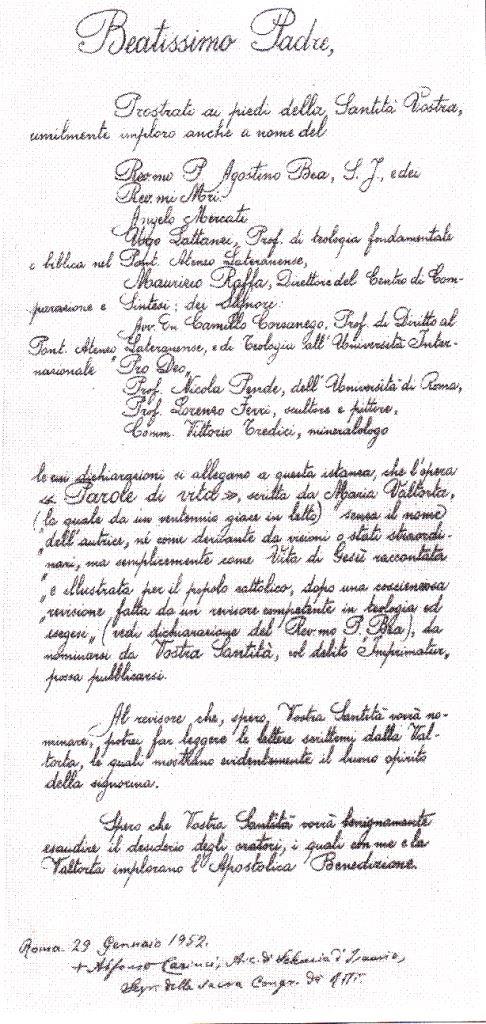 Beatissimo Padre,
Prostrati ai piedi della Santità Vostra,
umilmente imploro anche a nome del
Rev.mo P. Agostino Bea, S. J., e dei
Rev.mi Mri.
Angelo Mercati
Ugo Lattanzi, Prof. di teologia fondamentale
e biblica nel Pont. Ateneo Lateranense,
Maurizio Raffa, Direttore del Centro di Com-
parazione e Sintesi; dei Signori:
Avv. En Camillo Corsanego, Prof. di Diritto al
Pont. Ateneo Lateranense, e di Teologia all'Università Inter-
nazionale "Pro Deo",
Prof. Nicola Pende, dell'Università di Roma,
Prof. Lorenzo Ferri, scultore e pittore,
Comm. Vittorio Tredici, mineralologo
le cui dichiarazioni si allegano a questa istanza, che l'opera
« Parole di vita », scritta da Maria Valtorta,
(la quale da un ventennio giace in letto) "senza il nome
"dell'autrice, nè come derivante da visioni o stati straordi-
"nari, ma semplicemente come Vita di Gesù raccontata
"e illustrata per il popolo cattolico, dopo una coscienziosa
"revisione fatta da un revisore competente in teologia ed
esegesi" (vedi dichiarazione del Rev.mo P. Bea), da
nominarsi da Vostra Santità, col debito "Imprimatur",
possa pubblicarsi.
Al revisore che, spero, Vostra Santità vorrà no-
minare, potrei far leggere le lettere scrittemi dalla Val-
torta, le quali mostrano evidentemente il buono spirito
della signorina.
Spero che Vostra Santità vorrà benignamente
esaudire il desiderio degli oratori, i quali con me e la
Valtorta implorano l'Apostolica Benedizione.
Roma 29 Gennaio 1952.
+ Alfonso Carinci, Arc. di Seleucia d'Isauria,
Segr. della Sacra Congr. dei Riti.